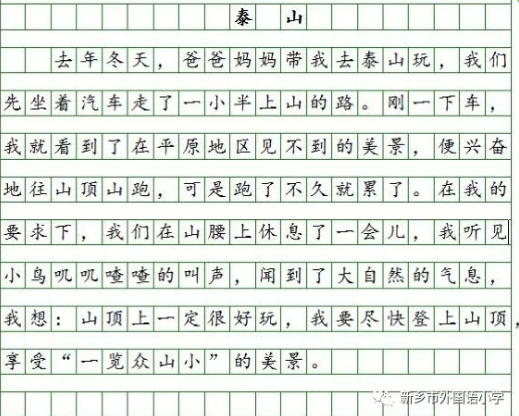 泰山
去年冬天，爸爸妈妈带我去泰山玩，我们
先坐着汽车走了一小半上山的路。刚一下车，
我就看到了在平原地区见不到的美景，便兴奋
地往山顶山跑，可是跑了不久就累了。在我的
要求下，我们在山腰上休息了一会儿，我听见
小鸟叽叽喳喳的叫声，闻到了大自然的气息，
我想：山顶上一定很好玩，我要尽快登上山顶，
享受“一览众山小”的美景。
新乡市外国语小学